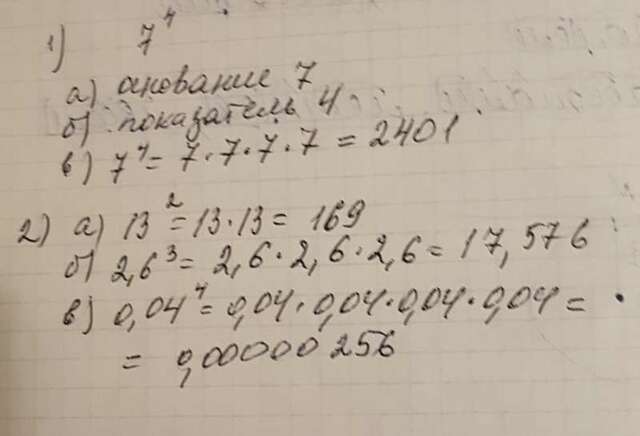 1) 7⁴
а) онование 7
б) показатель 4
в) 7⁴ = 7·7·7·7 = 2401
2) а) 13² = 13·13 = 169
б) 2,6³ = 2,6·2,6·2,6 = 17,576
в) 0,04⁴ = 0,04·0,04·0,04·0,04 =
= 0,00000256